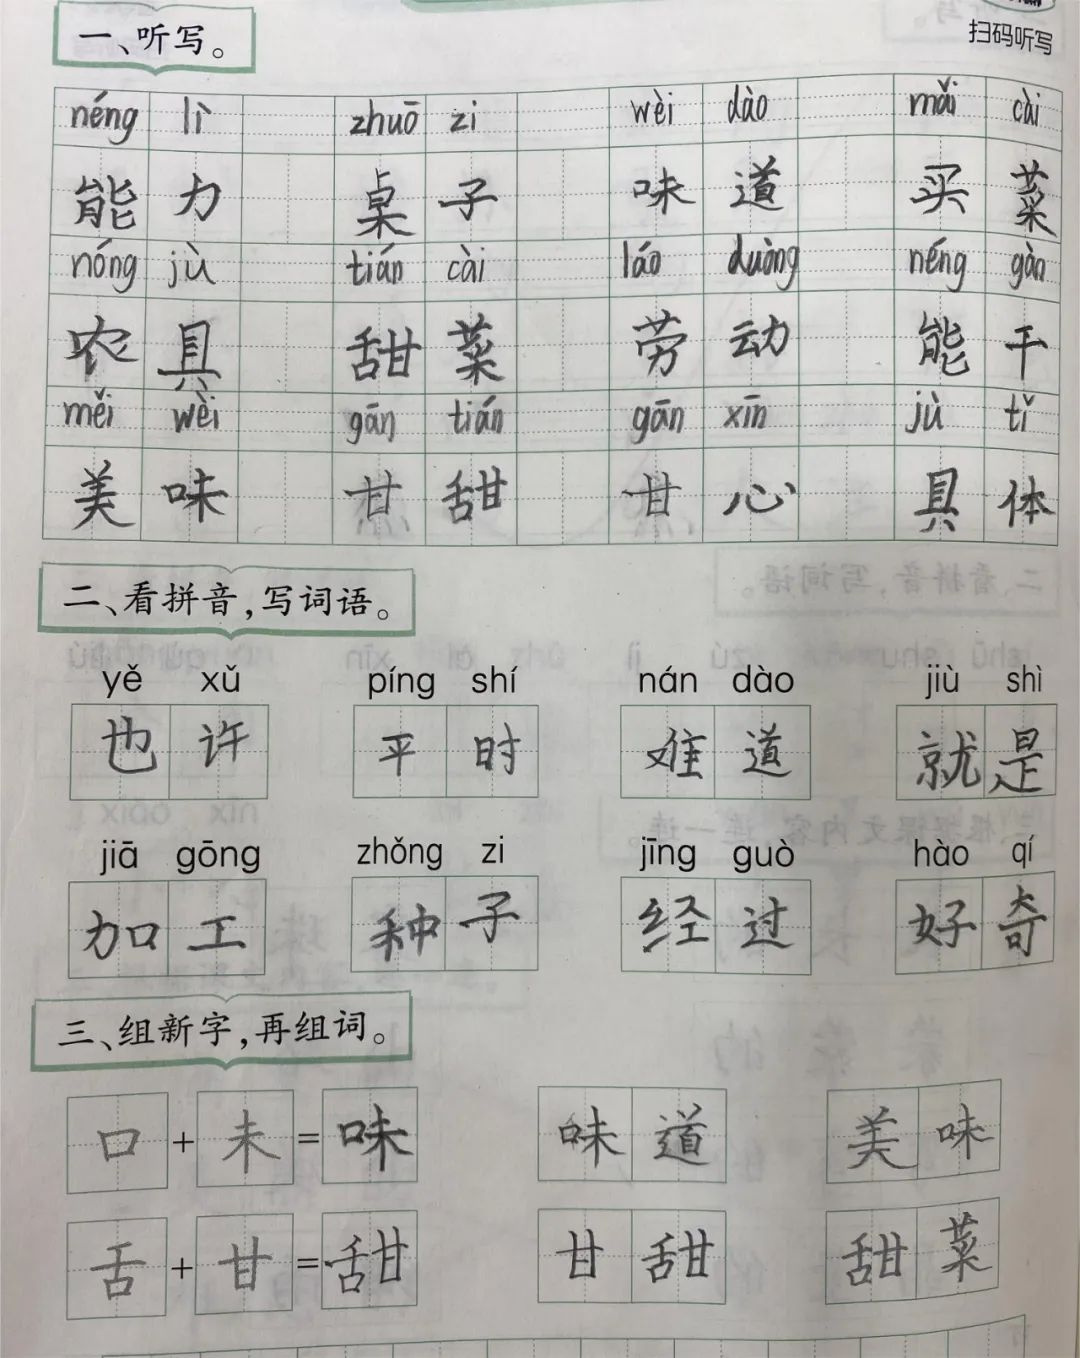 扫码听写
一、听写。
néng lì zhuō zi wèi dào mǎi cài
能力 桌子 味道 买菜
nóng jù tián cài láo duòng néng gàn
农具 甜菜 劳动 能干
měi wèi gān tián gān xīn jù tǐ
美味 甘甜 甘心 具体
二、看拼音,写词语。
yě xǔ píng shí nán dào jiù shì
也许 平时 难道 就是
jiā gōng zhǒng zi jīng guò hào qí
加工 种子 经过 好奇
三、组新字,再组词。
口+未=味 味道 美味
舌+甘=甜 甘甜 甜菜